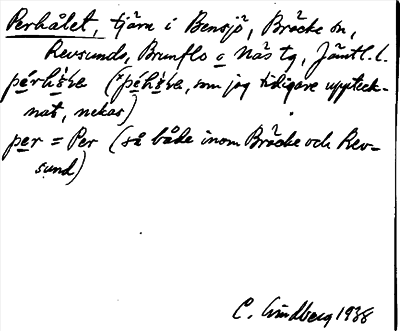 Perhålet, tjärn i Bensjö, Bräcke sn,
Revsunds, Brunflo o Näs tg, Jämtl. l.
pérhò̀le (*péhò̀le, som jag tidigare uppteck-
nat, nekas)
per = Per (så både inom Bräcke och Rev-
sund)
C. Lindberg 1938